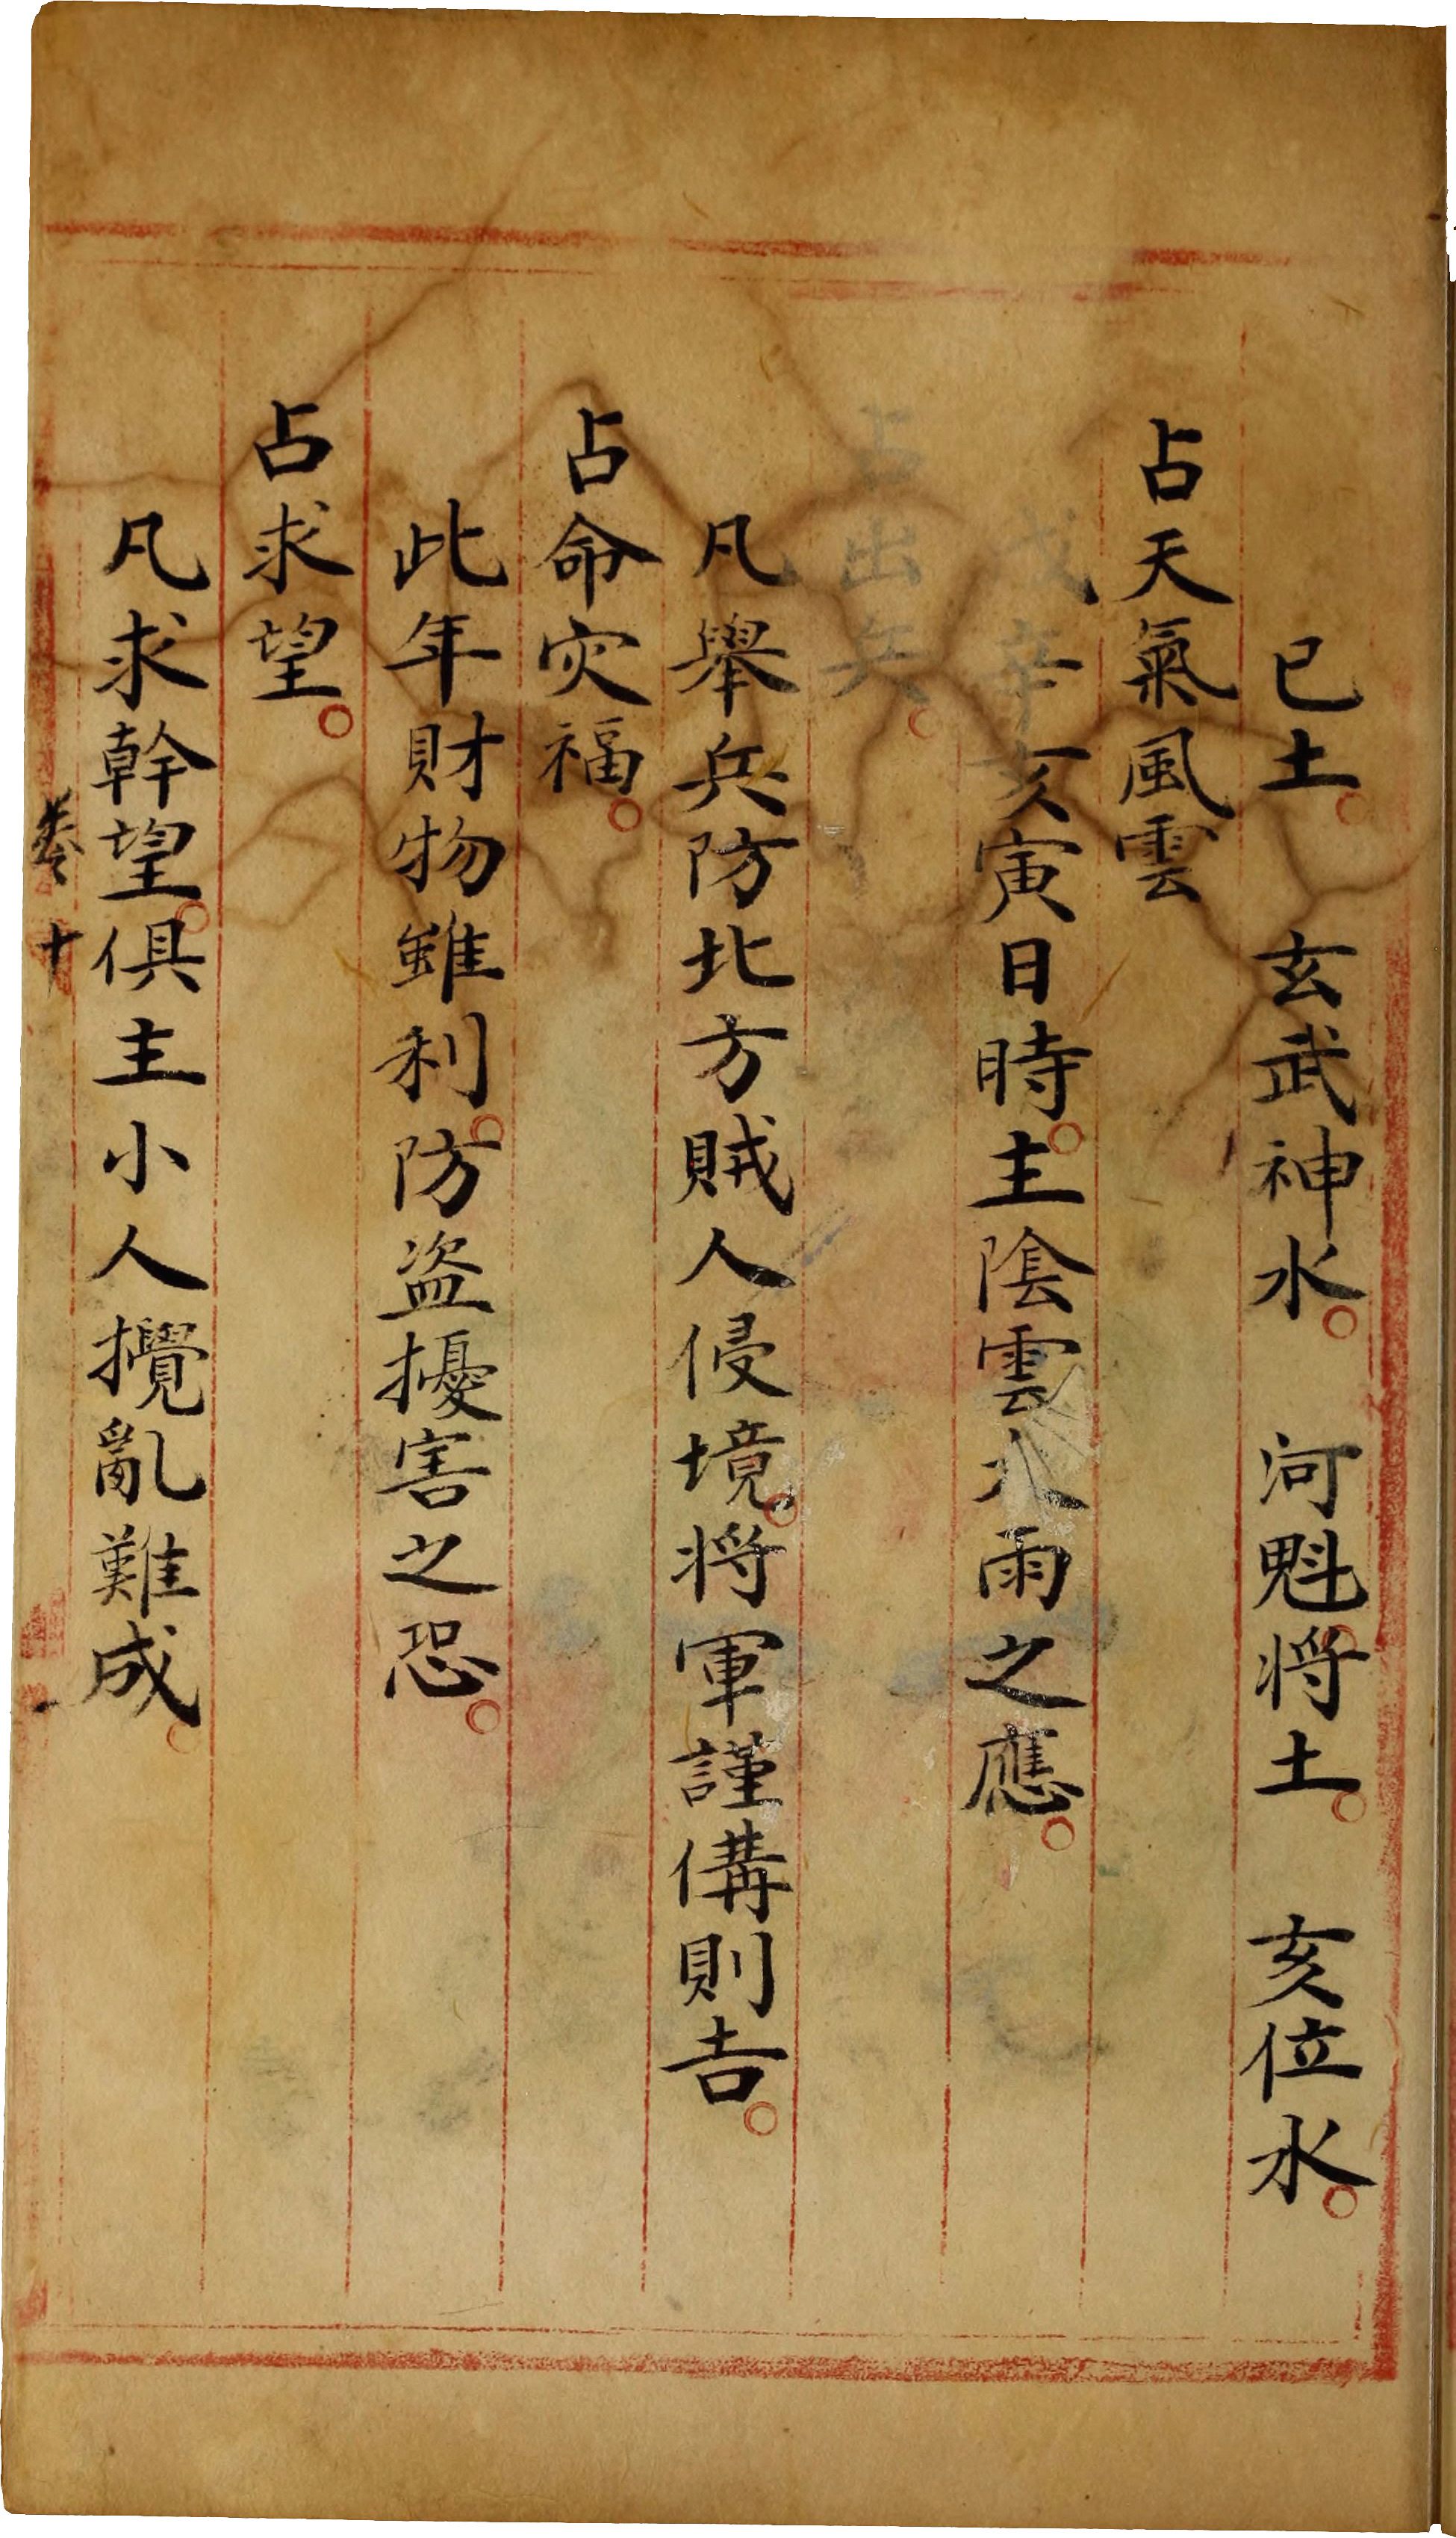 已土玄武神水河魁将土亥位水
占天氣風雲
戊辛亥寅日時主陰雲水雨之應
占出兵
凡舉兵防北方賊人侵境将軍謹俻則吉
占命灾福
此年財物雖利防盗擾害之恐
占求望
凡求幹望俱主小人攪亂難成
卷十